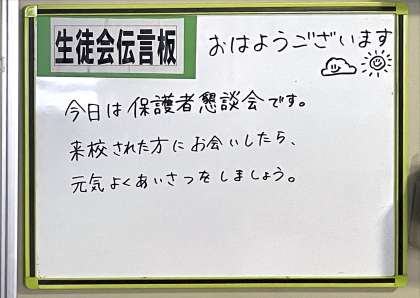 生徒会伝言板
おはようございます
今日は保護者懇談会です。
来校された方にお会いしたら、
元気よくあいさつをしましょう。